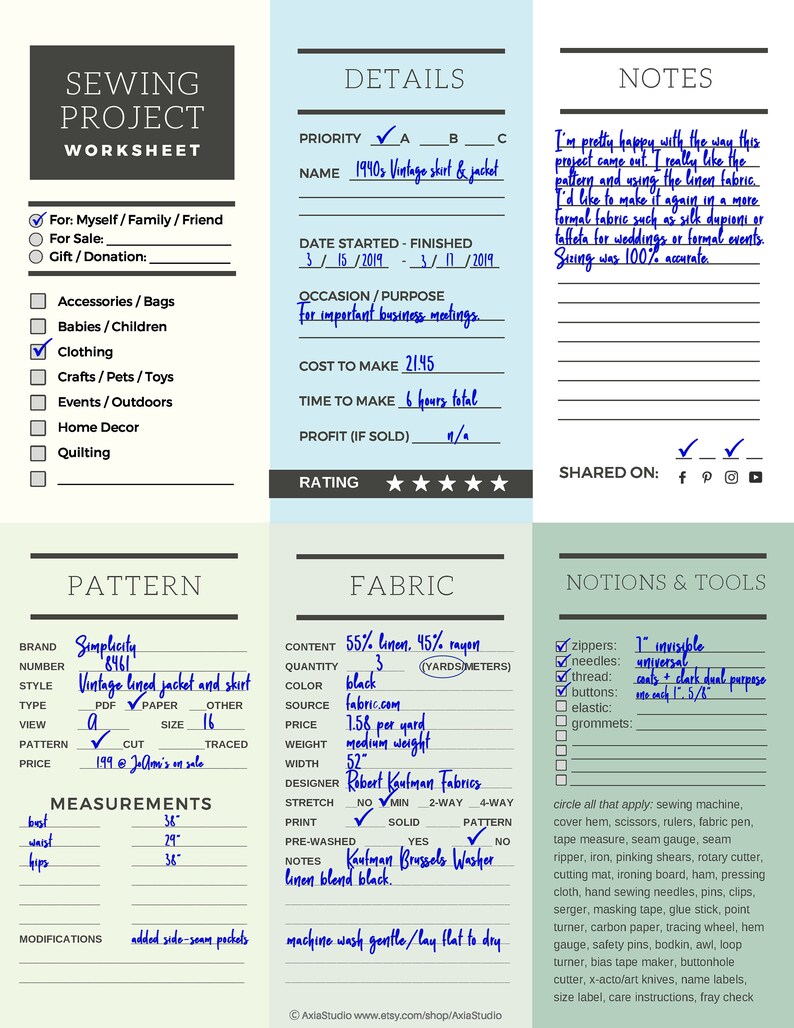 SEWING
PROJECT
WORKSHEET
For: Myself / Family / Friend
For Sale:
Gift / Donation:
Accessories / Bags
Babies / Children
Clothing
Crafts / Pets / Toys
Events / Outdoors
Home Decor
Quilting
DETAILS
PRIORITY A B C
NAME 1940s Vintage skirt & jacket
DATE STARTED - FINISHED
3 / 15 / 2019 - 3 / 17 / 2019
OCCASION / PURPOSE
For important business meetings.
COST TO MAKE 21.45
TIME TO MAKE 6 hours total
PROFIT (IF SOLD) n/a
RATING ★ ★ ★ ★ ★
NOTES
I'm pretty happy with the way this
project came out. I really like the
pattern and using the linen fabric.
I'd like to make it again in a more
formal fabric such as silk dupioni or
taffeta for weddings or formal events.
Sizing was 100% accurate.
SHARED ON:
PATTERN
BRAND Simplicity
NUMBER 8461
STYLE Vintage lined jacket and skirt
TYPE PDF PAPER OTHER
VIEW A SIZE 16
PATTERN CUT TRACED
PRICE 1.99 @ JoAnn's on sale
MEASUREMENTS
bust 38"
waist 29"
hips 38"
MODIFICATIONS added side-seam pockets
FABRIC
CONTENT 55% linen, 45% rayon
QUANTITY 3 (YARDS/METERS)
COLOR black
SOURCE fabric.com
PRICE 7.58 per yard
WEIGHT medium weight
WIDTH 52"
DESIGNER Robert Kaufman Fabrics
STRETCH NO MIN 2-WAY 4-WAY
PRINT SOLID PATTERN
PRE-WASHED YES NO
NOTES Kaufman Brussels Washer
linen blend black.
machine wash gentle/lay flat to dry
© AxiaStudio www.etsy.com/shop/AxiaStudio
NOTIONS & TOOLS
zippers: 7" invisible
needles: universal
thread: coats + clark dual purpose
buttons: one each 1", 5/8"
elastic:
grommets:
circle all that apply: sewing machine,
cover hem, scissors, rulers, fabric pen,
tape measure, seam gauge, seam
ripper, iron, pinking shears, rotary cutter,
cutting mat, ironing board, ham, pressing
cloth, hand sewing needles, pins, clips,
serger, masking tape, glue stick, point
turner, carbon paper, tracing wheel, hem
gauge, safety pins, bodkin, awl, loop
turner, bias tape maker, buttonhole
cutter, x-acto/art knives, name labels,
size label, care instructions, fray check